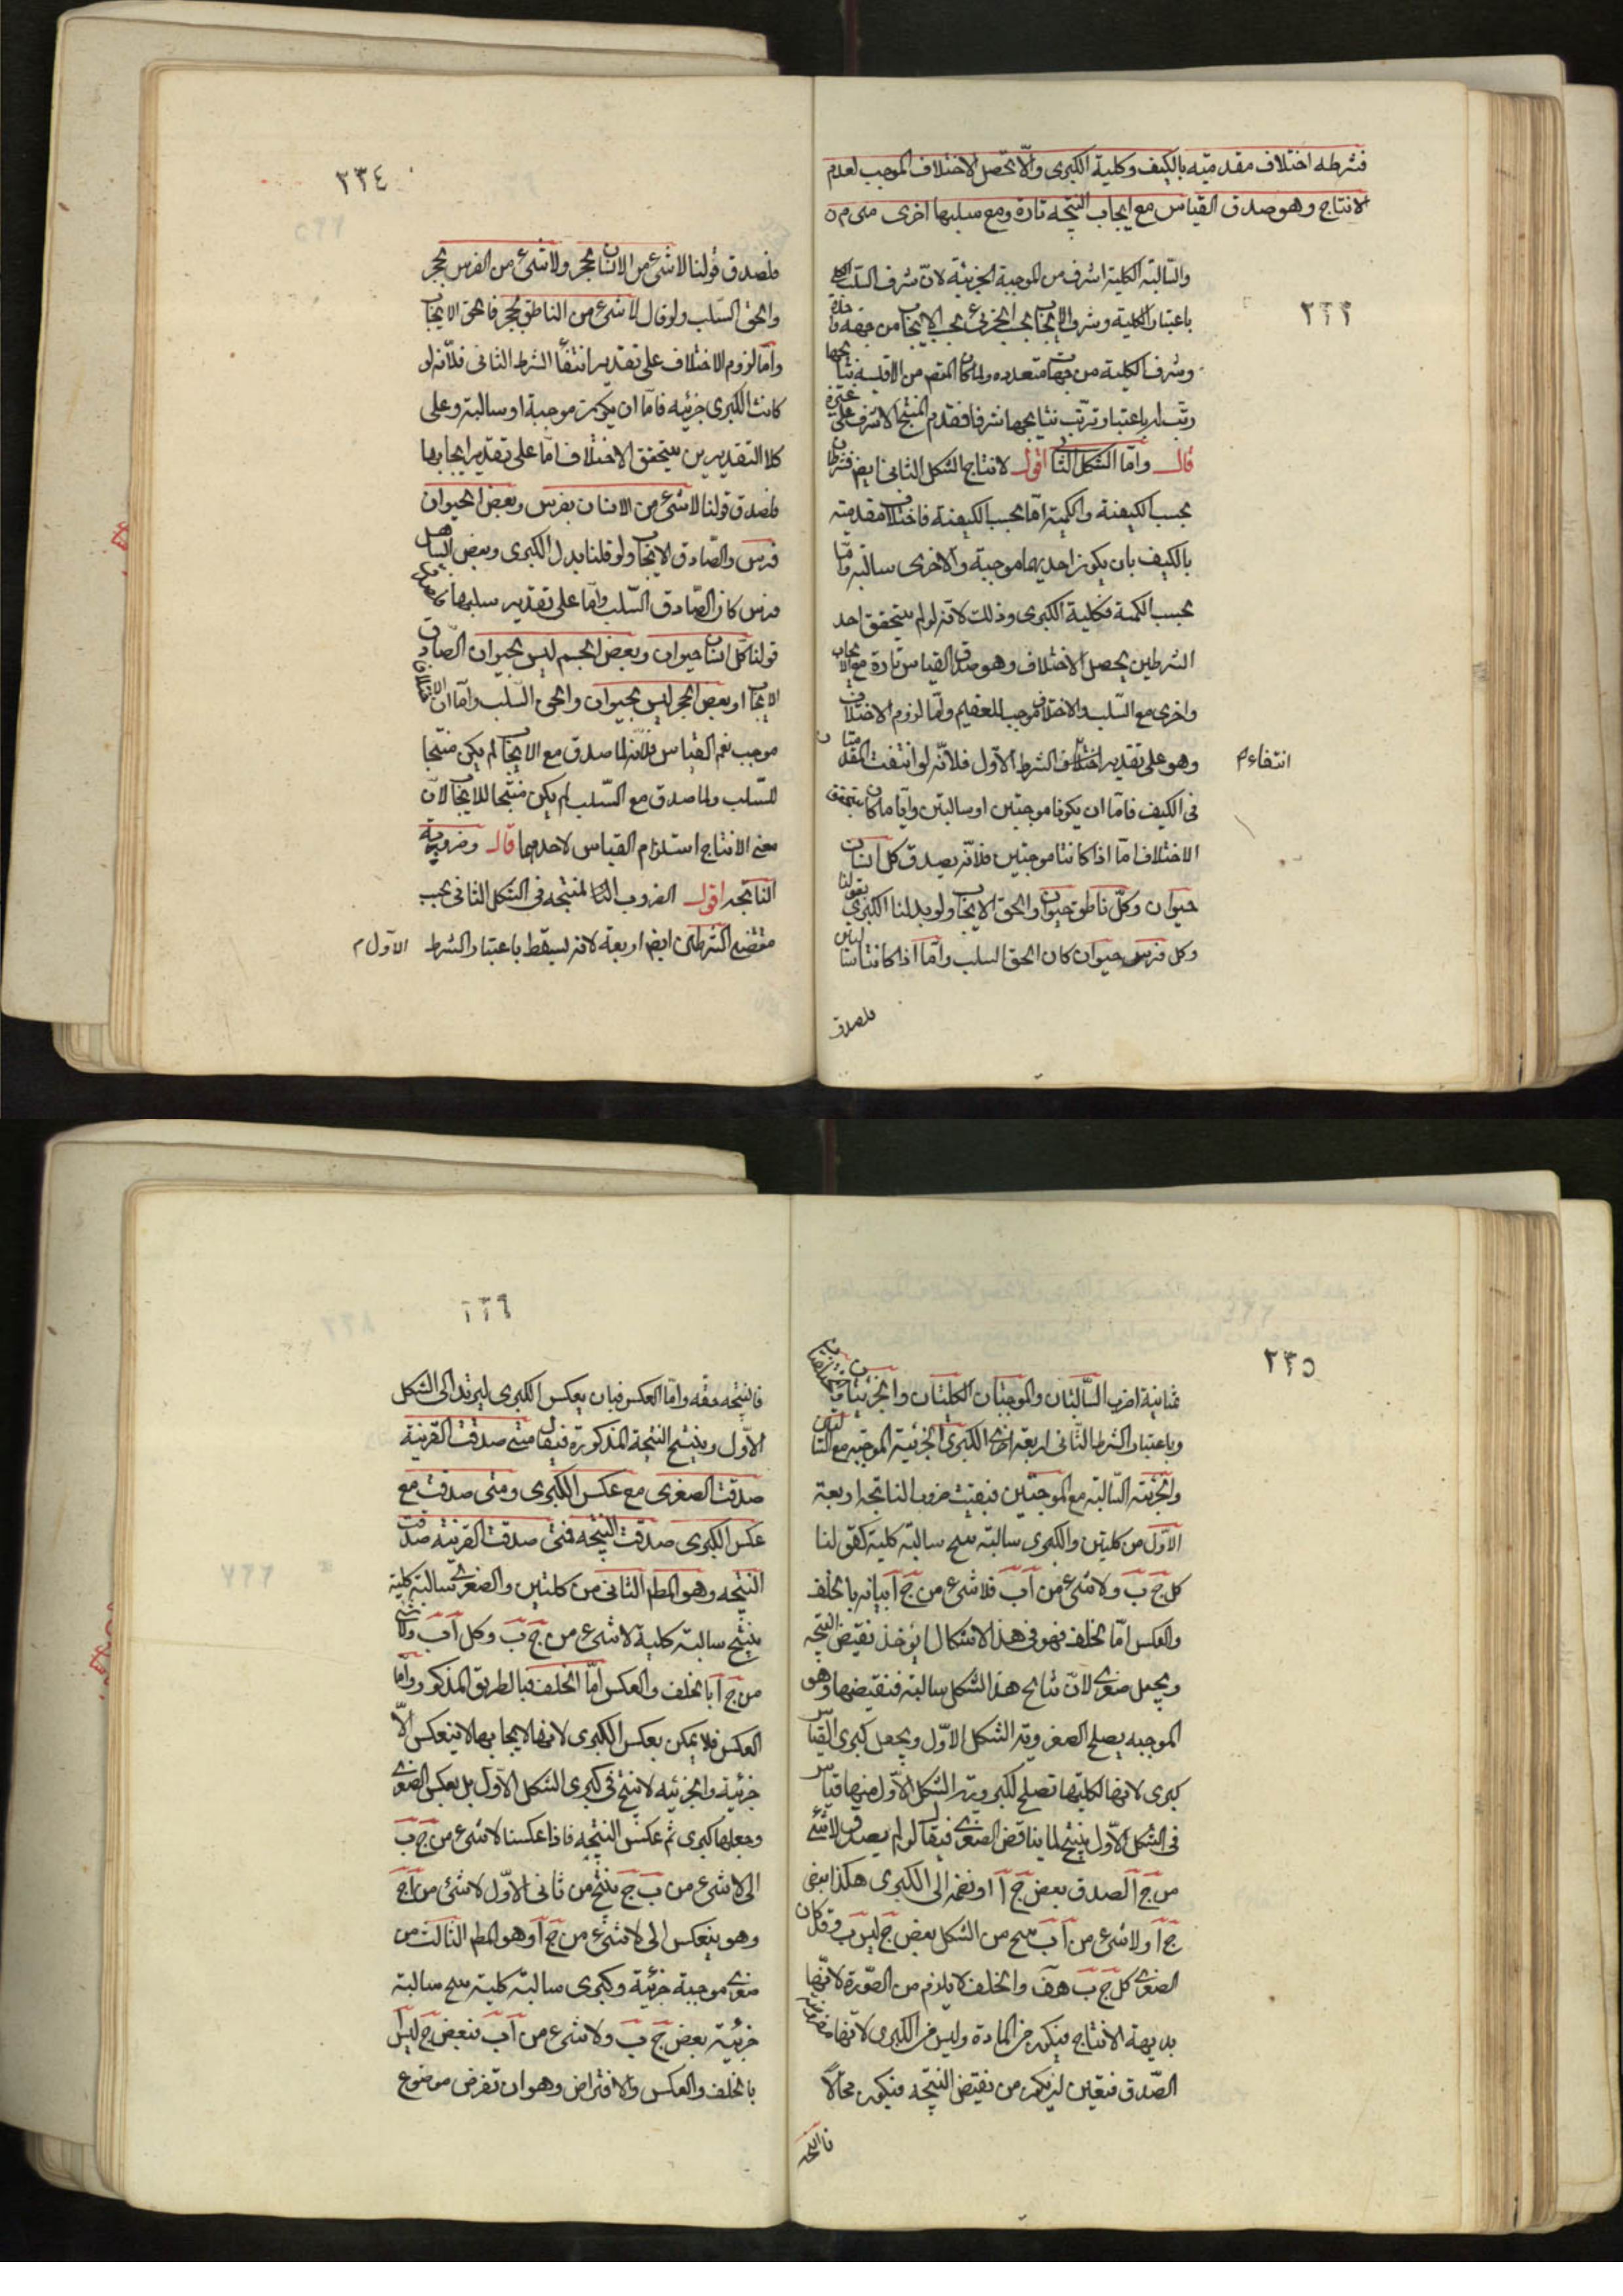 فشرطه اختلاف مقدمتيه بالكيف وكلية الكبرى والّا يحصل الاختلاف الموجب لعدم
الانتاج وهو صدق القياس مع ايجاب النتيجة تارة ومع سلبها اخرى
٢٣٣
والسالبة الكلية اشرف من الموجبة الجزئية لانّ شرف السلب الكلى
باعتبار الكلية وشرف الايجاب الجزئى بحسب الايجاب من جهة واحدة
وشرف الكلية من جهات متعددة ولما كان المقصود من الاقيسة نتائجها
رتب باعتبار ترتب نتائجها شرفا فقدم المنتج الاشرف على غيره
قال وامّا الشكل الثانى اقول لانتاج الشكل الثانى ايضا شرطان
بحسب الكيفية والكمية امّا بحسب الكيفية فاختلاف مقدمتيه
بالكيف بان يكون احديهما موجبة والاخرى سالبة وامّا
بحسب الكمية فكلية الكبرى وذلك لانه لو لم يتحقق احد
الشرطين يحصل الاختلاف وهو صدق القياس تارة مع الايجاب
واخرى مع السلب والاختلاف موجب للعقيم وامّا لزوم الاختلاف
وهو على تقدير الشرط الاول فلانّه لو انتفت المقدمتان
انتفاء م
فى الكيف فامّا ان يكونا موجبتين او سالبتين وايّا ما كان يتحقق
الاختلاف امّا اذا كانتا موجبتين فلانّه يصدق كل انسان
حيوان وكلّ ناطق حيوان والحق الايجاب ولو بدلنا الكبرى بقولنا
وكل فرس حيوان كان الحق السلب وامّا اذا كانتا سالبتين
فلصدق
٢٣٤
فلصدق قولنا لا شىء من الانسان بحجر ولا شىء من الفرس بحجر
والحق السلب ولو قال لا شىء من الناطق بحجر فالحق الايجاب
وامّا لزوم الاختلاف على تقدير انتفاء الشرط الثانى فلانّه لو
كانت الكبرى جزئية فامّا ان يكون موجبة او سالبة وعلى
كلا التقديرين يتحقق الاختلاف امّا على تقدير ايجابها
فلصدق قولنا لا شىء من الانسان بفرس وبعض الحيوان
فرس والصّادق الايجاب ولو قلنا بدل الكبرى وبعض الصاهل
فرس كان الصّادق السّلب وامّا على تقدير سلبها فلصدق
قولنا كلّ انسان حيوان وبعض الجسم ليس بحيوان والصّادق
الايجاب او بعض الحجر ليس بحيوان والحق السّلب وامّا ان الاختلاف
موجب عقم القياس فلانّه لما صدق مع الايجاب لم يكن منتجا
للسّلب ولما صدق مع السّلب لم يكن منتجا للايجاب لانّ
معنى الانتاج استلزام القياس لاحدهما قال وضروبه
الناتجة اقول الضروب المنتجة فى الشكل الثانى بحسب
مقتضى الشرطين ايضا اربعة لانه يسقط باعتبار الشرط الاول م
٢٣٥
ثمانية اضرب السالبتان والموجبتان الكليتان والجزئيتان
وباعتبار الشرط الثانى اربعة اخرى الكبرى الجزئية الموجبة مع السالبتين
والجزئية السالبة مع الموجبتين فبقيت ضروب الناتجة اربعة
الاوّل من كليتين والكبرى سالبة ينتج سالبة كلية كقولنا
كل ج ب ولا شىء من آ ب فلا شىء من ج آ بيانه بالخلف
والعكس امّا الخلف فهو فى هذا الاشكال ان يؤخذ نقيض النتيجة
ويجعل صغرى لانّ نتائج هذا الشكل سالبة فنقيضها وهو
الموجبة يصلح لصغروية الشكل الاوّل ويجعل كبرى القياس
كبرى لانها لكليتها تصلح لكبروية الشكل الاوّل منهما قياس
فى الشكل الاوّل ينتج لما يناقض الصغرى فيقال لو لم يصدق لا شىء
من ج آ لصدق بعض ج آ ونضمه الى الكبرى هكذا بعض
ج آ ولا شىء من آ ب ينتج من الشكل بعض ج ليس ب وقد كان
الصغرى كل ج ب هف والخلف لا يلزم من الصّورة لانّها
بديهة الانتاج فيكون من المادة وليس من الكبرى لانها مفروضة
الصّدق فتعين ان يكون من نقيض النتيجة فيكون محالا
فالنتيجة
٢٣٦
فالنتيجة حقه وامّا العكس فبان يعكس الكبرى ليرتد الى الشكل
الاوّل وينتج النتيجة المذكورة فيقال متى صدقت القرينة
صدقت الصغرى مع عكس الكبرى ومتى صدقت مع
عكس الكبرى صدقت النتيجة فمتى صدقت القرينة صدقت
النتيجة وهو المط الثانى من كليتين والصغرى سالبة كلية
ينتج سالبة كلية لا شىء من ج ب وكل آ ب فلا شىء
من ج آ بالخلف والعكس امّا الخلف فبالطريق المذكور وامّا
العكس فلا يمكن بعكس الكبرى لانها لايجابها لا ينعكس الّا
جزئية والجزئية لا ينتج فى كبرى الشكل الاوّل بل بعكس الصغرى
وجعلها كبرى ثم عكس النتيجة فاذا عكسنا لا شىء من ج ب
الى لا شىء من ب ج ينتج من ثانى الاوّل لا شىء من آ ج
وهو ينعكس الى لا شىء من ج آ وهو المط الثالث من
صغرى موجبة جزئية وكبرى سالبة كلية ينتج سالبة
جزئية بعض ج ب ولا شىء من آ ب فبعض ج ليس آ
بالخلف والعكس والافتراض وهو ان تفرض موضوع